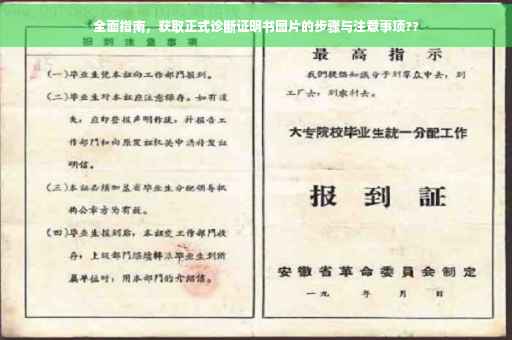 全面指南，获取正式诊断证明书图片的步骤与注意事项??
报到注意事项
(一)毕业生凭本证向工作部门报到。
(二)毕业生对本证应注意保存。如有遗
失，应即登报声明作废，并报告工
作部门和向原发证机关申请补发证
明信。
(三)本证必须加盖省毕业生分配领导机
构公章方为有效。
(四)毕业生报到后，本证交工作部门收
存；上级部门继续转派毕业生到所
属单位时，用本部门的介绍信。
最高指示
我们提倡知识分子到群众中去，到
工厂去，到农村去。
大专院校毕业生统一分配工作
报到証
安徽省革命委员会制定
一九 年 月 日